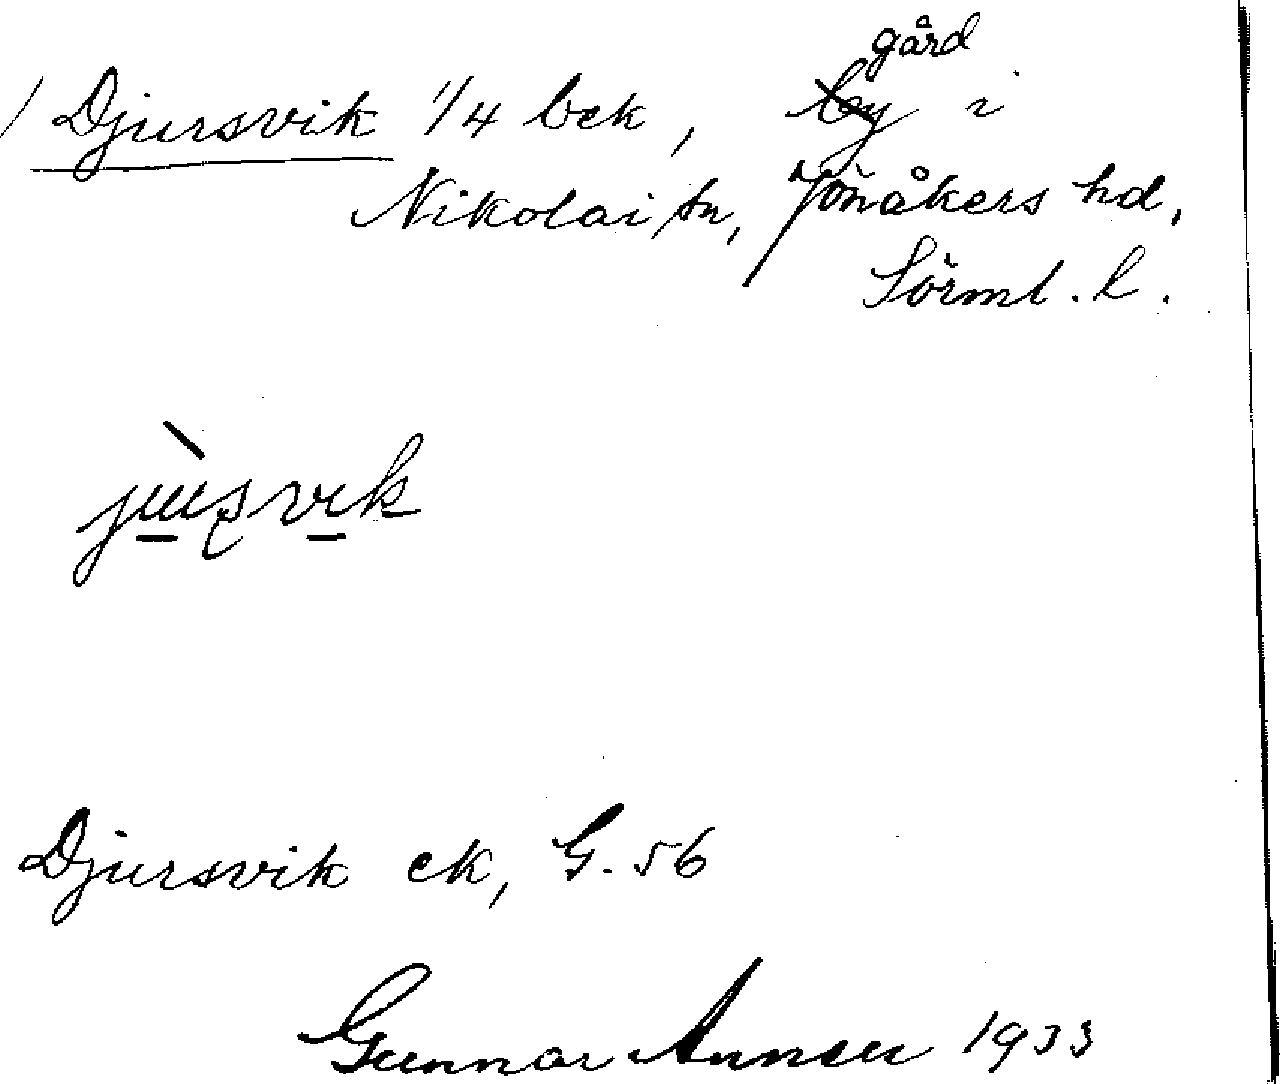 gård
/ Djursvik 1/4 bek, by i
Nikolai sn, Jönåkers hd,
Sörml. l.
jusvik
Djursvik ek, G. 56
Gunnar 1933